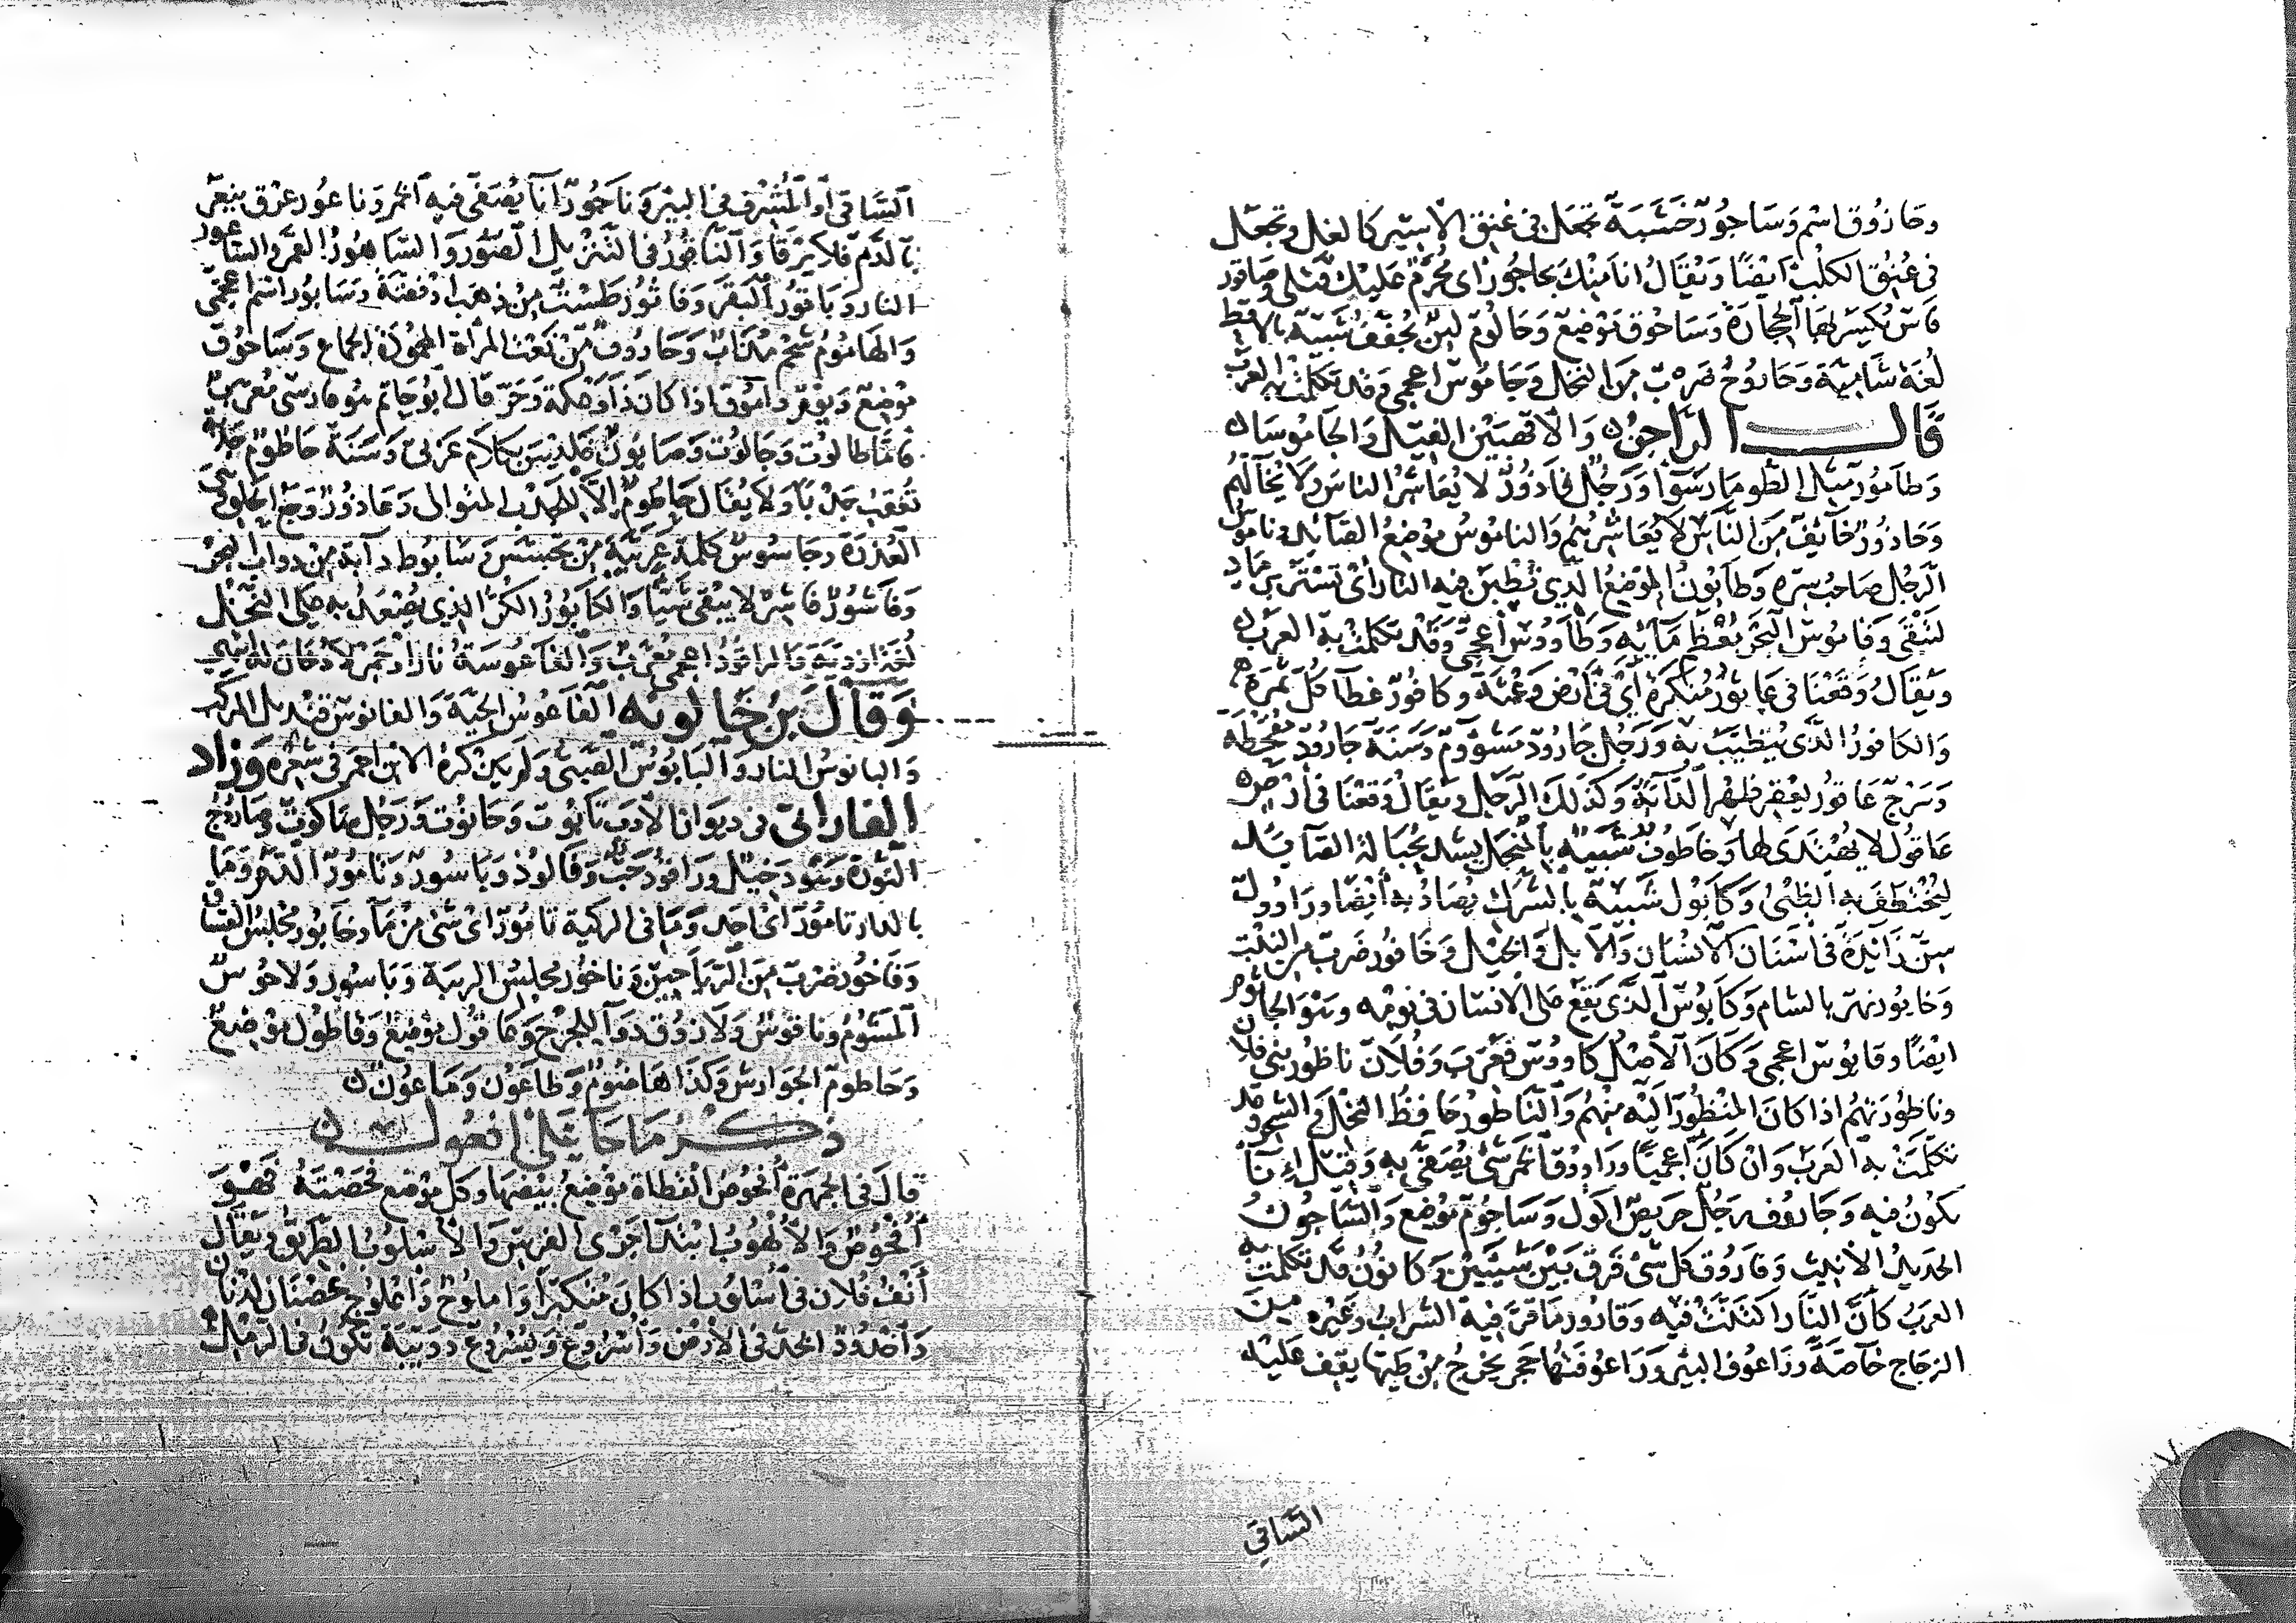 وحازوق اسم وساجور خشبة تجعل في عنق الاسير كالغل وتجعل
في عنق الكلب ايضا ويقال انا منك بحاجور اي محرم عليك قتلي وصاقور
فاس تكسر بها الحجارة وساحوق موضع وحالوم لبن يجفف شبيه بالاقط
لغة شامية وحاروج ضرب من النخل وجاموس اعجمي وقد تكلمت به العرب
قال الراجز والاقهبين الفيل والجاموسا
وطامور مثل الطومار سوا ورجل قاذور لا يعاشر الناس ولا يخالهم
وحاذور خائف من الناس لا يعاشرهم والناموس موضع الصائد وناموس
الرجل صاحب سره وطابون الموضع الذي تطبن فيه النار اي تستر برماد
لتبقى وقاموس البحر معظم مايه وطاووس اعجمي وقد تكلمت به العرب
ويقال وقعنا في عاثور منكرة اي في ارض وعثة وكافور غطا كل ثمرة
والكافور الذي يتطيب به ورجل جارود مشووم وسنة جارود مقحطة
وسرج عاقور يعقر ظهر الدابة وكذلك الرجل ويقال وقعنا في ارض
عاقول لا يهتدى لها وخاطوف شبيه بالمنجل يشد بحبالة الصايد
ليختطف به الظبي وكابول شبيه بالشرك يصاد به ايضا وراوول
سن زائدة في اسنان الانسان والابل والخيل وخافور ضرب من النبت
وخابور نهر بالشام وكابوس الذي يقع على الانسان في نومه وهو الجاثوم
ايضا وقابوس اعجمي وكان الاصل كاووس فعرب وفلان ناظور بني فلان
وناظورتهم اذا كان المنظور اليه منهم والناطور حافظ النخل والشجر وقد
تكلمت به العرب وان كان اعجميا وراووق الخمر شي يصفى به وقيل انآ
تكون فيه وجاروف رجل حريص اكول وساجوم موضع والشاجون
الحديد الانيث وفاروق كل شي فرق بين شيئين وكانون قد تكلمت به
العرب كأن النار اكتنت فيه وقارور ما قر فيه الشراب وغيره من
الزجاج خاصة وراعوف البير وراعوفتها حجر يخرج من طيها يقف عليه
الساقي
الساقي او المشرف في البير وناجود انآ يصفى فيه الخمر وناعور عرق ينعر
بالدم فلا يرقا والناقور في التنزيل الصور والساهور القمر والساعور
النار وباقور البقر وفاثور طست من ذهب او فضة وسابور اسم اعجمي
والهاموم شحم مذاب وحاروق من نعت المرأة المحمودة الجماع وساحوق
موضع ويوم دامُوق اذا كان ذا وعكة وحر قال ابو حاتم هو فارسي معرب
فاما طالوت وجالوت وصابون فليس بكلام عربي وسنة حاطوم جدبة
تعقب جدبا ولا يقال حاطوم الا للجدب المتوالي وعاذور وجع الحلق
العذرة وجاسوس كلمة عربية من تجسس وسابوط دابة من دواب البحر
وقاشور قاشر لا يبقي شيئا والكابور الكر الذي يصعد به على النخل
لغة ازدية والراقود اعجمي معرب والفاعوسة نار او جمر لا دخان له
وقال بن خالويه الفاعوس الحية والفانوس قنديل المركب
والبانوس النار والبابوس الصبي ولم يكن ذكره الا بن احمر في شعره وزاد
الفارابي في ديوان الادب تابوت وحانوت ورجل ساكوت وصاروج
النورة وهود خيل وراقود حب وفالوذ وباسور وتامور الدم وما
بالدار تامور اي احد وما في الركية تامور اي شي من ما وخابور مجلس الفساق
وفاخور ضرب من الرياحين وناخور مجلس الريبة وباسور ولاحوس
المشوم وناقوس ولازوق دوا للجرح وعاقول موضع وقاطول موضع
وحاطوم الجوارش وكذا هاضوم وطاعون وماعون
ذكر ما جا على افعول
قال في الجمهرة افحوص القطاة موضع بيضها وكل موضع فحصته فهو
افحوص والالهوب ابتدا جري الفرس والاسلوب الطريق ويقال
انف فلان في اسلوب اذا كان متكبرا واملوح واعلوج غصنان لدنان
واخدود الخد في الارض واسروع ويسروع دويبة تكون في الرمل